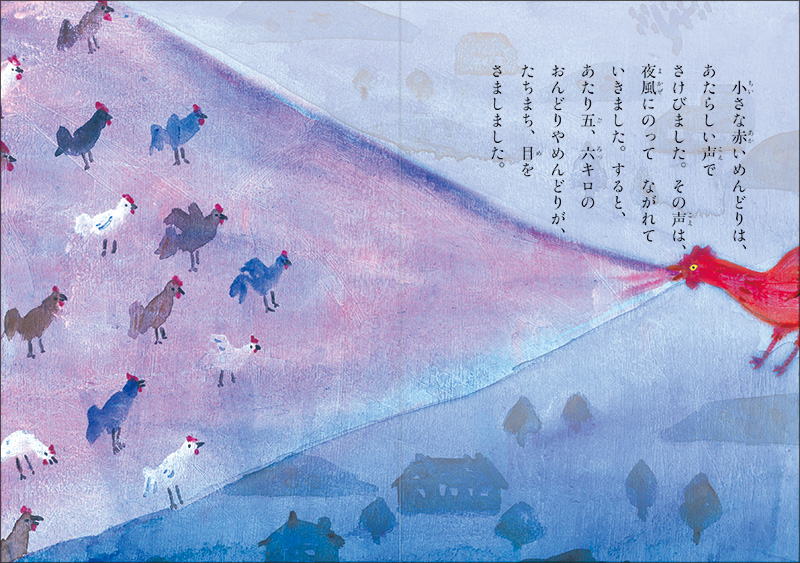 小さな赤いめんどりは、
あたらしい声で
さけびました。その声は、
夜風にのって　ながれて
いきました。すると、
あたり五、六キロの
おんどりやめんどりが、
たちまち、目を
さましました。